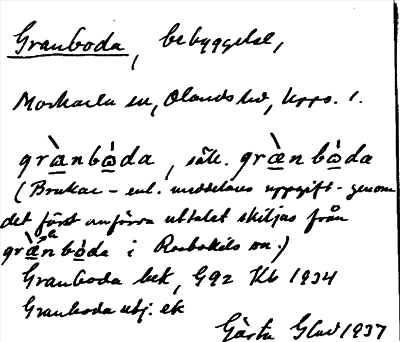 Granboda, bebyggelse,
Morkarla sn, Olands hd, Upps. l.
grànbȧ̀da, sält. græ̀nbȧ̀da
(Brukar – enl. meddelares uppgift – genom
det först anförda uttalet skiljas från
græ̀nbȧ̀da i Rasbokils sn.)
Granboda bek, G92 Kb 1934
Granboda utj. ek
Gärta Glad 1937